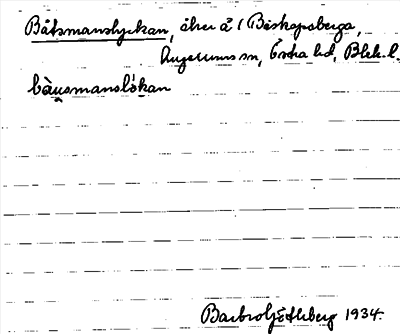 Båtsmanslyckan, åker å / Biskopsberga,
Augerums sn, Östra hd, Blek. l.
bàu̯smanslỏkan
Barbro Götleberg 1934.